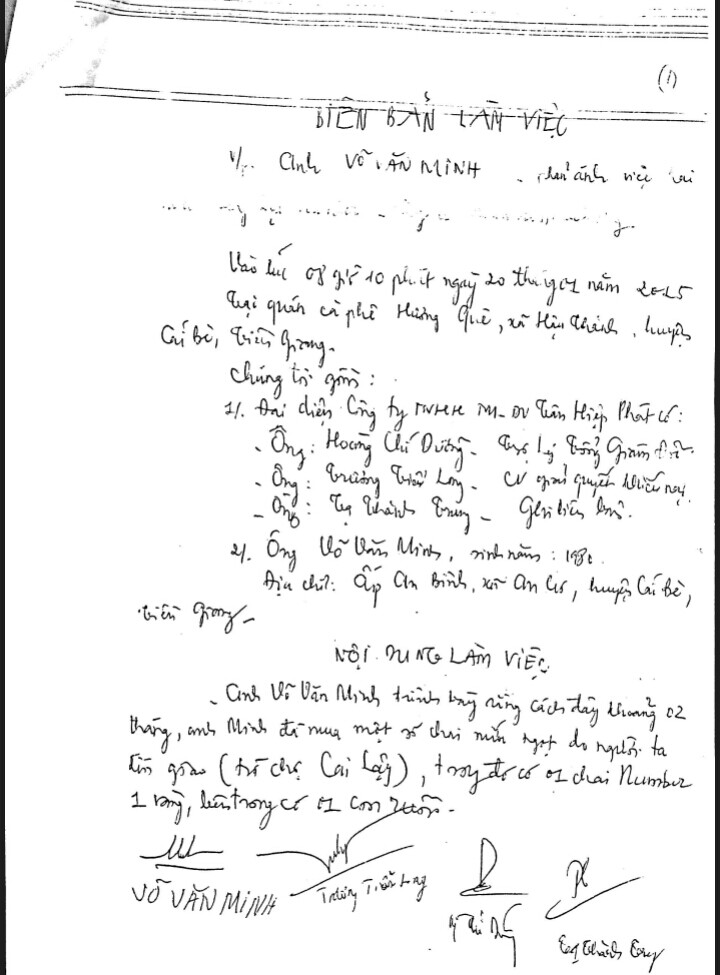 (1)
BIÊN BẢN LÀM VIỆC
V/v. Anh VÕ VĂN MINH - phản ánh việc
Vào lúc 08 giờ 10 phút ngày 20 tháng 01 năm 2015
tại quán cà phê Hương Quê, xã Hậu Thành, huyện
Cái Bè, Tiền Giang.
Chúng tôi gồm:
1/. Đại diện Công ty TNHH TM-DV Tân Hiệp Phát có:
- Ông: Hoàng Chí Dương - Trợ lý Tổng Giám đốc.
- Ông: Trương Tiến Long - CV giải quyết khiếu nại.
- Ông: Tạ Thành Trung - Ghi biên bản.
2/. Ông Võ Văn Minh, sinh năm: 1980.
Địa chỉ: Ấp An Bình, xã An Cư, huyện Cái Bè,
Tiền Giang -
NỘI DUNG LÀM VIỆC
- Anh Võ Văn Minh trình bày rằng cách đây khoảng 02
tháng, anh Minh đã mua một số chai nước ngọt do người ta
đến giao (từ chợ Cai Lậy), trong đó có 01 chai Number
1 vàng, bên trong có 01 con ruồi.
VÕ VĂN MINH
Trương Tiến Long